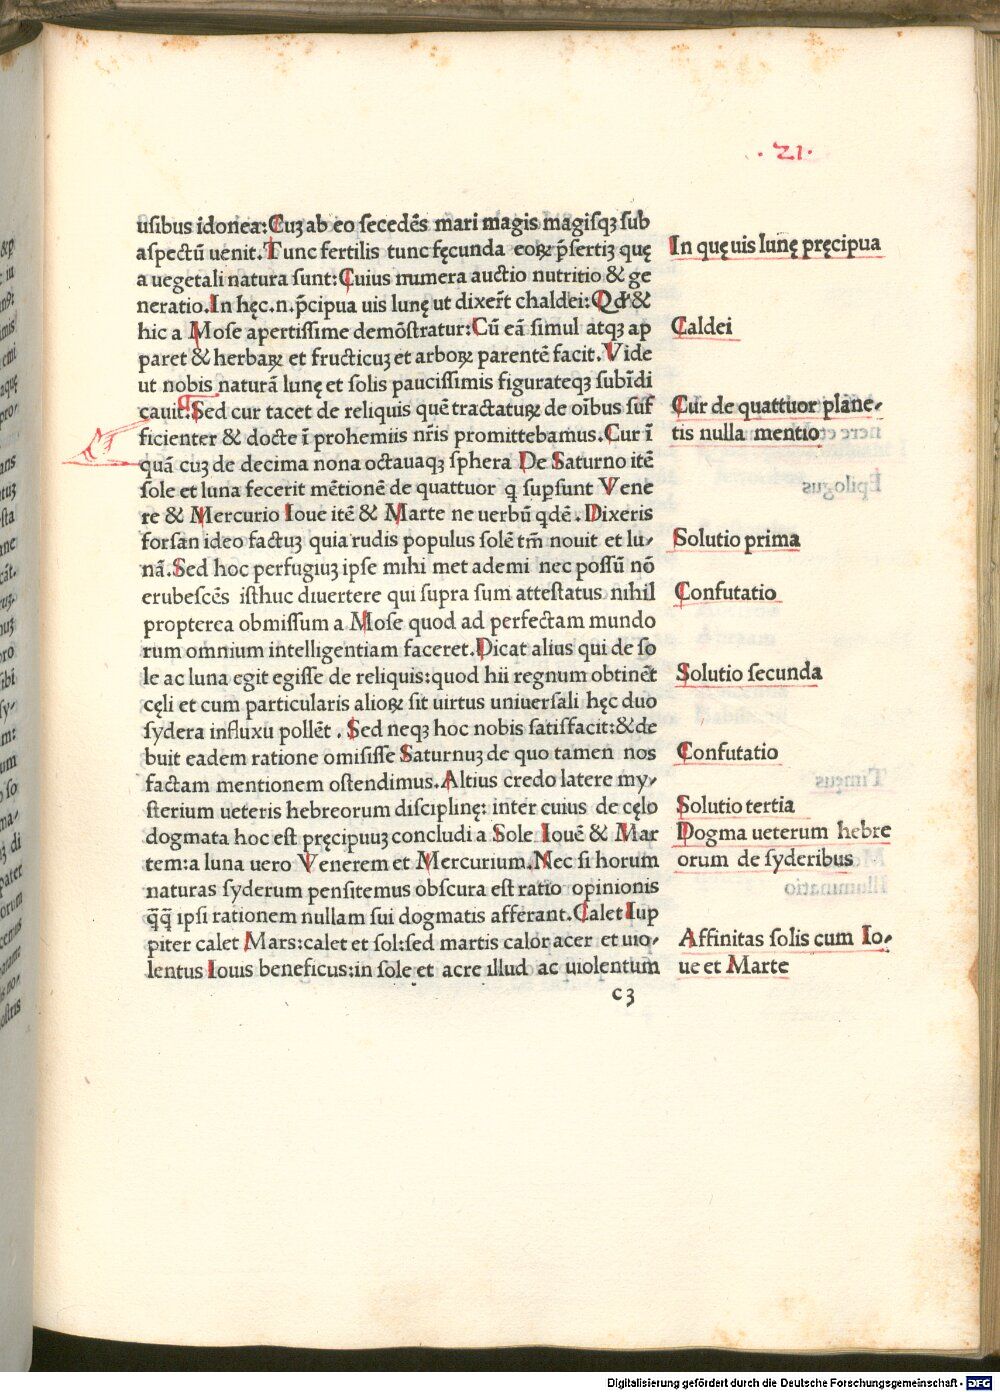 .21.
usibus idonea:Cuꝫ ab eo secedēs mari magis magisqꝫ sub
aspectū uenit.Tunc fertilis tunc fęcunda eoꝝ p̄sertiꝫ quę
a uegetali natura sunt:Cuius numera auctio nutritio & ge
neratio.In hęc.n.p̄cipua uis lunę ut dixer̄t chaldei:Qđ &
hic a Mose apertissime demōstratur:Cū eā simul atqꝫ ap
paret & herbaꝝ et fructicuꝫ et arboꝝ parentē facit.Vide
ut nobis naturā lunę et solis paucissimis figurateqꝫ subīdi
cauit.Sed cur tacet de reliquis quē tractatuꝝ de oībus suf
ficienter & docte ī prohemiis nr̄is promittebamus.Cur ī
quā cuꝫ de decima nona octauaqꝫ sphera De Saturno itē
sole et luna fecerit mētionē de quattuor q supsunt Vene
re & Mercurio Ioue itē & Marte ne uerbū qdē.Dixeris
forsan ideo factuꝫ quia rudis populus solē tm̄ nouit et lu-
nā.Sed hoc perfugiuꝫ ipse mihi met ademi nec possū nō
erubescēs isthuc diuertere qui supra sum attestatus nihil
propterea obmissum a Mose quod ad perfectam mundo
rum omnium intelligentiam faceret.Dicat alius qui de so
le ac luna egit egisse de reliquis:quod hii regnum obtinēt
cęli et cum particularis alioꝝ sit uirtus uniuersali hęc duo
sydera influxu pollēt . Sed neqꝫ hoc nobis satisfacit:& de
buit eadem ratione omisisse Saturnuꝫ de quo tamen nos
factam mentionem ostendimus.Altius credo latere my-
sterium ueteris hebreorum disciplinę: inter cuius de cęlo
dogmata hoc est pręcipuuꝫ concludi a Sole Iouē & Mar
tem:a luna uero Venerem et Mercurium.Nec si horum
naturas syderum pensitemus obscura est ratio opinionis
q̄q̄ ipsi rationem nullam sui dogmatis afferant.Calet Iup
piter calet Mars:calet et sol:sed martis calor acer et uio-
lentus Iouis beneficus:in sole et acre illud ac uiolentum
c3
In quę uis lunę pręcipua
Caldei
Cur de quattuor plane-
tis nulla mentio
Solutio prima
Confutatio
Solutio secunda
Confutatio
Solutio tertia
Dogma ueterum hebre
orum de syderibus
Affinitas solis cum Io-
ue et Marte
Digitalisierung gefördert durch die Deutsche Forschungsgemeinschaft - DFG